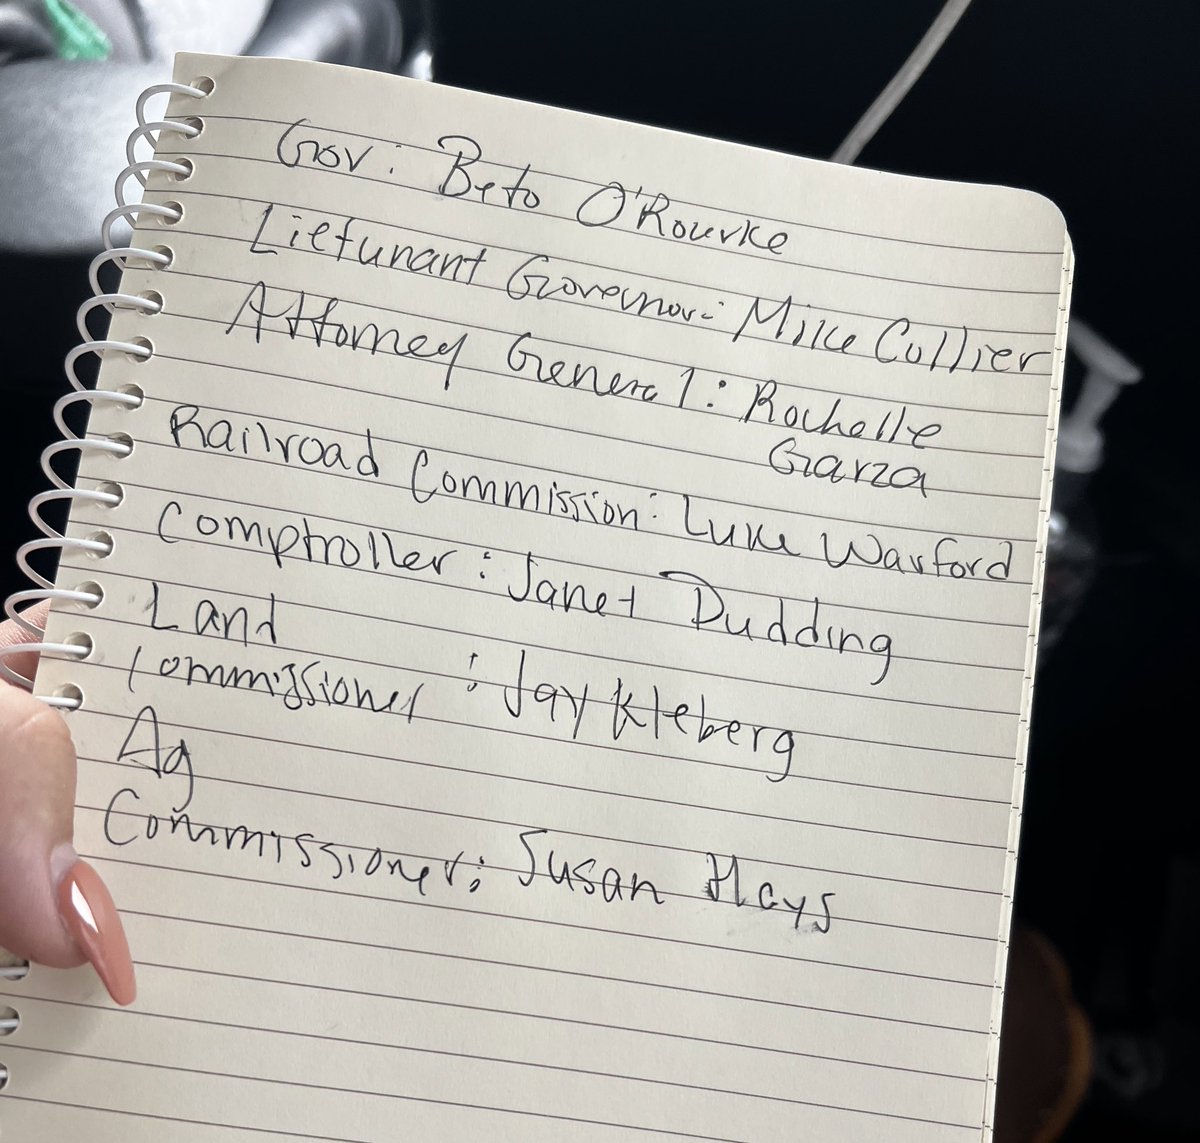 Gov: Beto O'Rourke
Lietunant Governor: Mike Collier
Attorney General: Rochelle
Garza
Railroad Commission: Luke Warford
Comptroller: Janet Dudding
Land
Commissioner : Jay Kleberg
Ag
Commissioner: Susan Hays